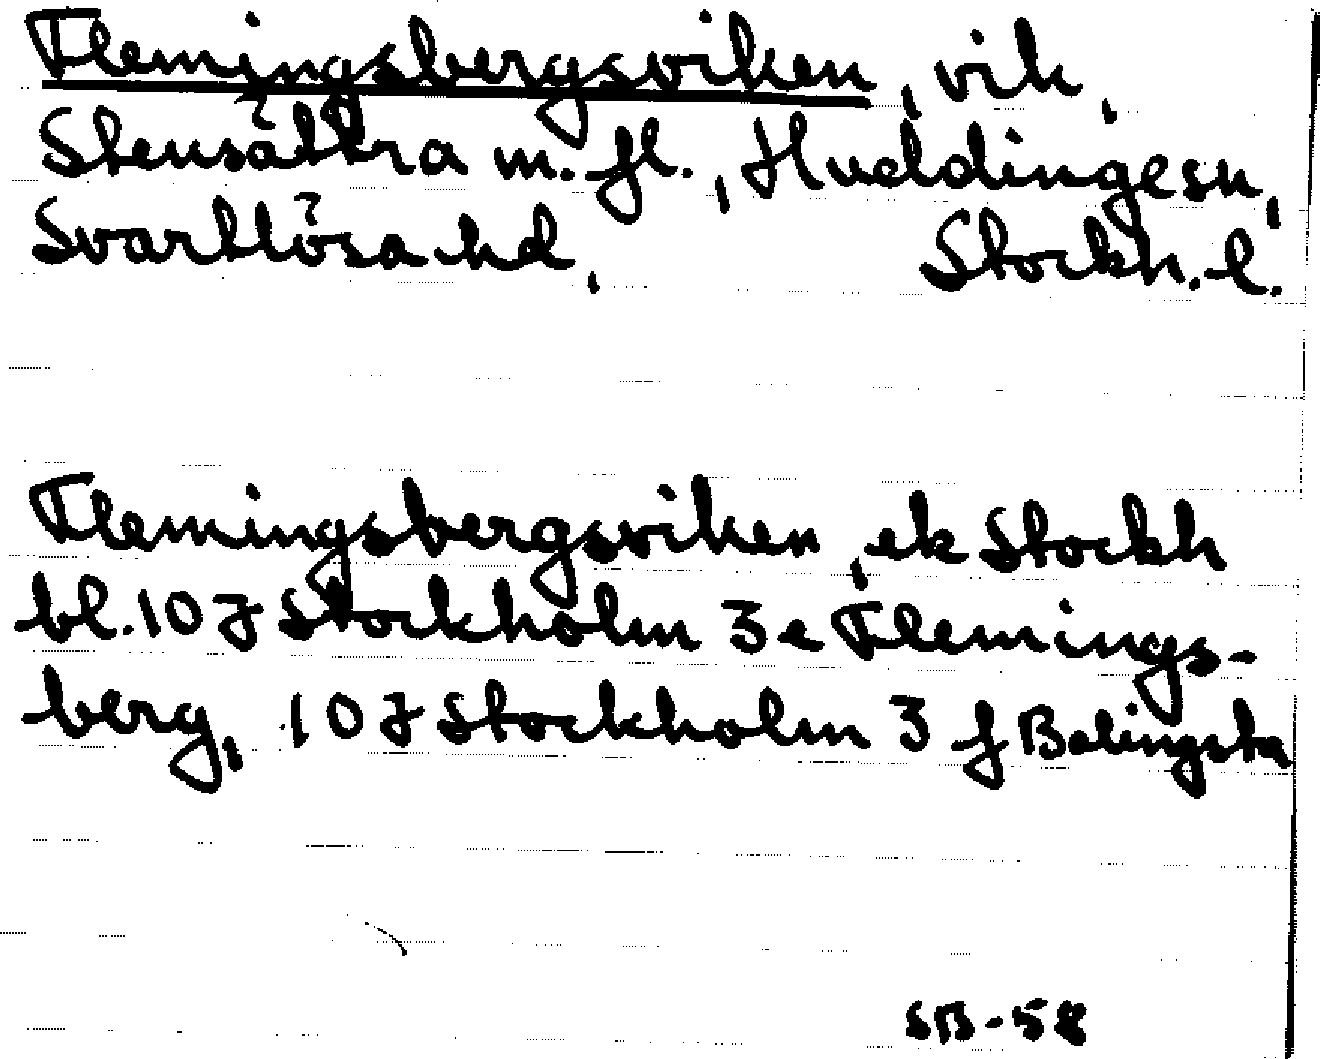 Flemingsbergsviken, vik,
Stensättra m. fl., Huddinge sn,
Svartlösa hd, Stockh. l.
Flemingsbergsviken, ek Stockh
bl. 10 J Stockholm 3 e Flemings-
berg, 10 J Stockholm 3 f Balingsta
SB-58